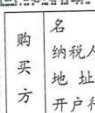 购买方
名
纳税人
地 址
开户行